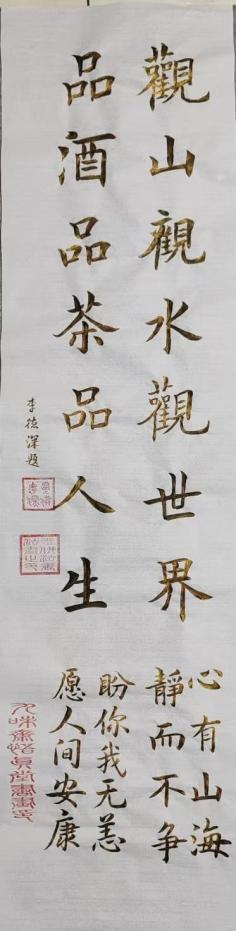 觀山觀水觀世界
品酒品茶品人生
心有山海
靜而不争
盼你我无恙
愿人间安康
李德深題